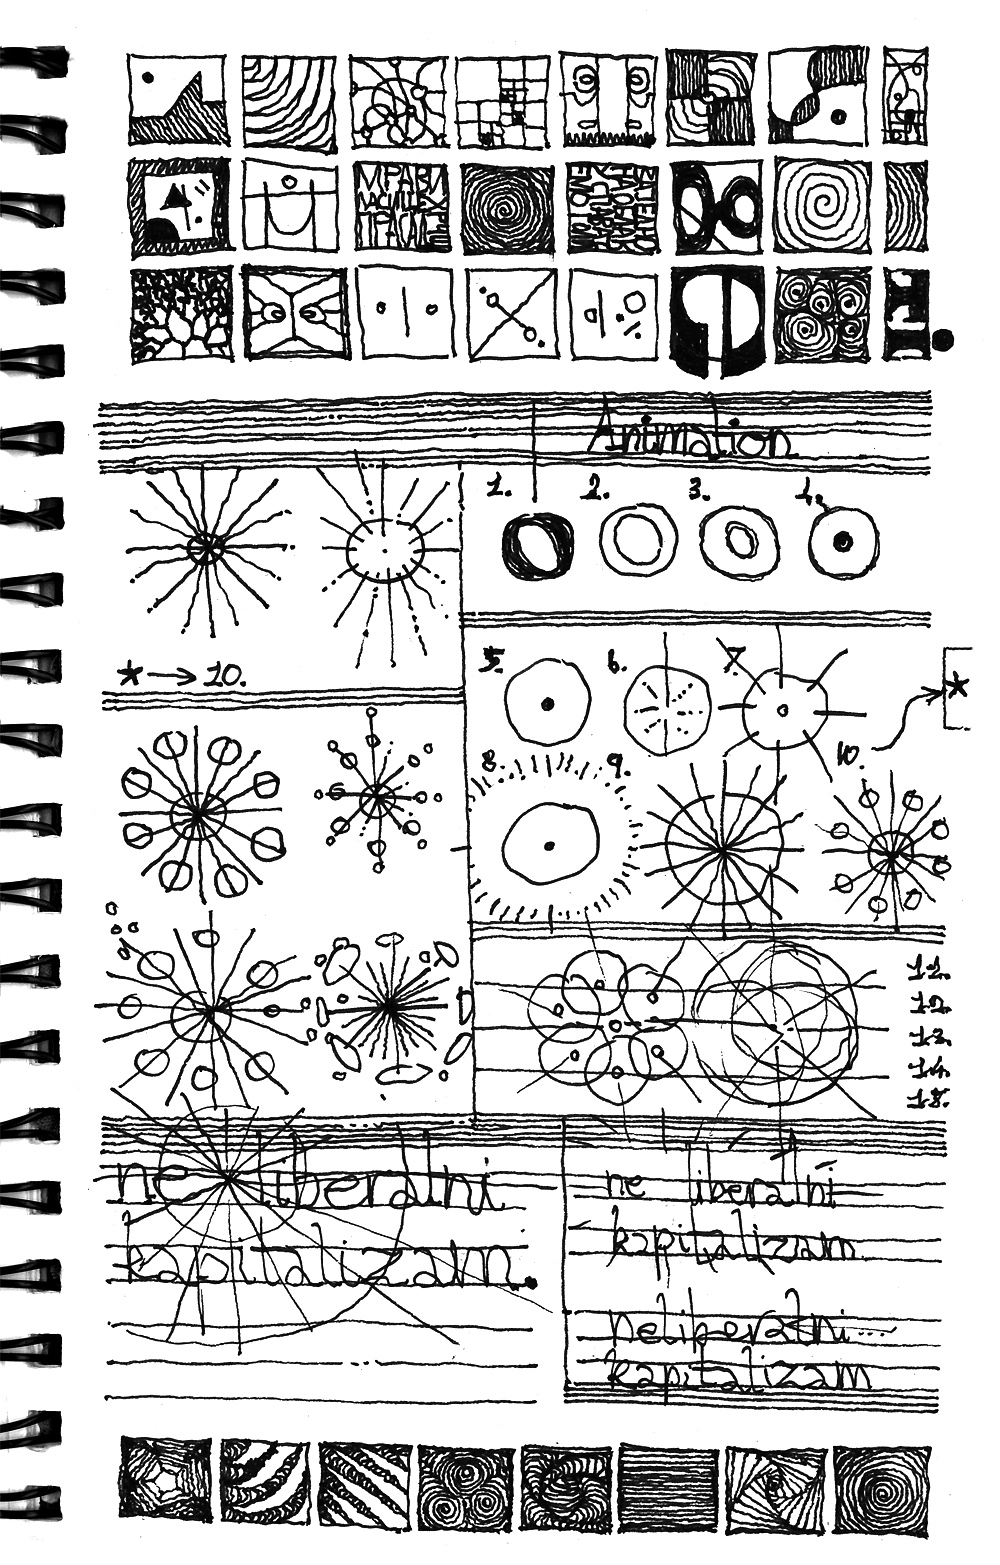 МРАВИ
Animation
1. 2. 3. 4.
* → 10.
5. 6. 7.
8. 9. 10.
*
11.
12.
13.
14.
15.
ne liberalni
kapitalizam.
ne liberalni
kapitalizam
neliberalni....
kapitalizam